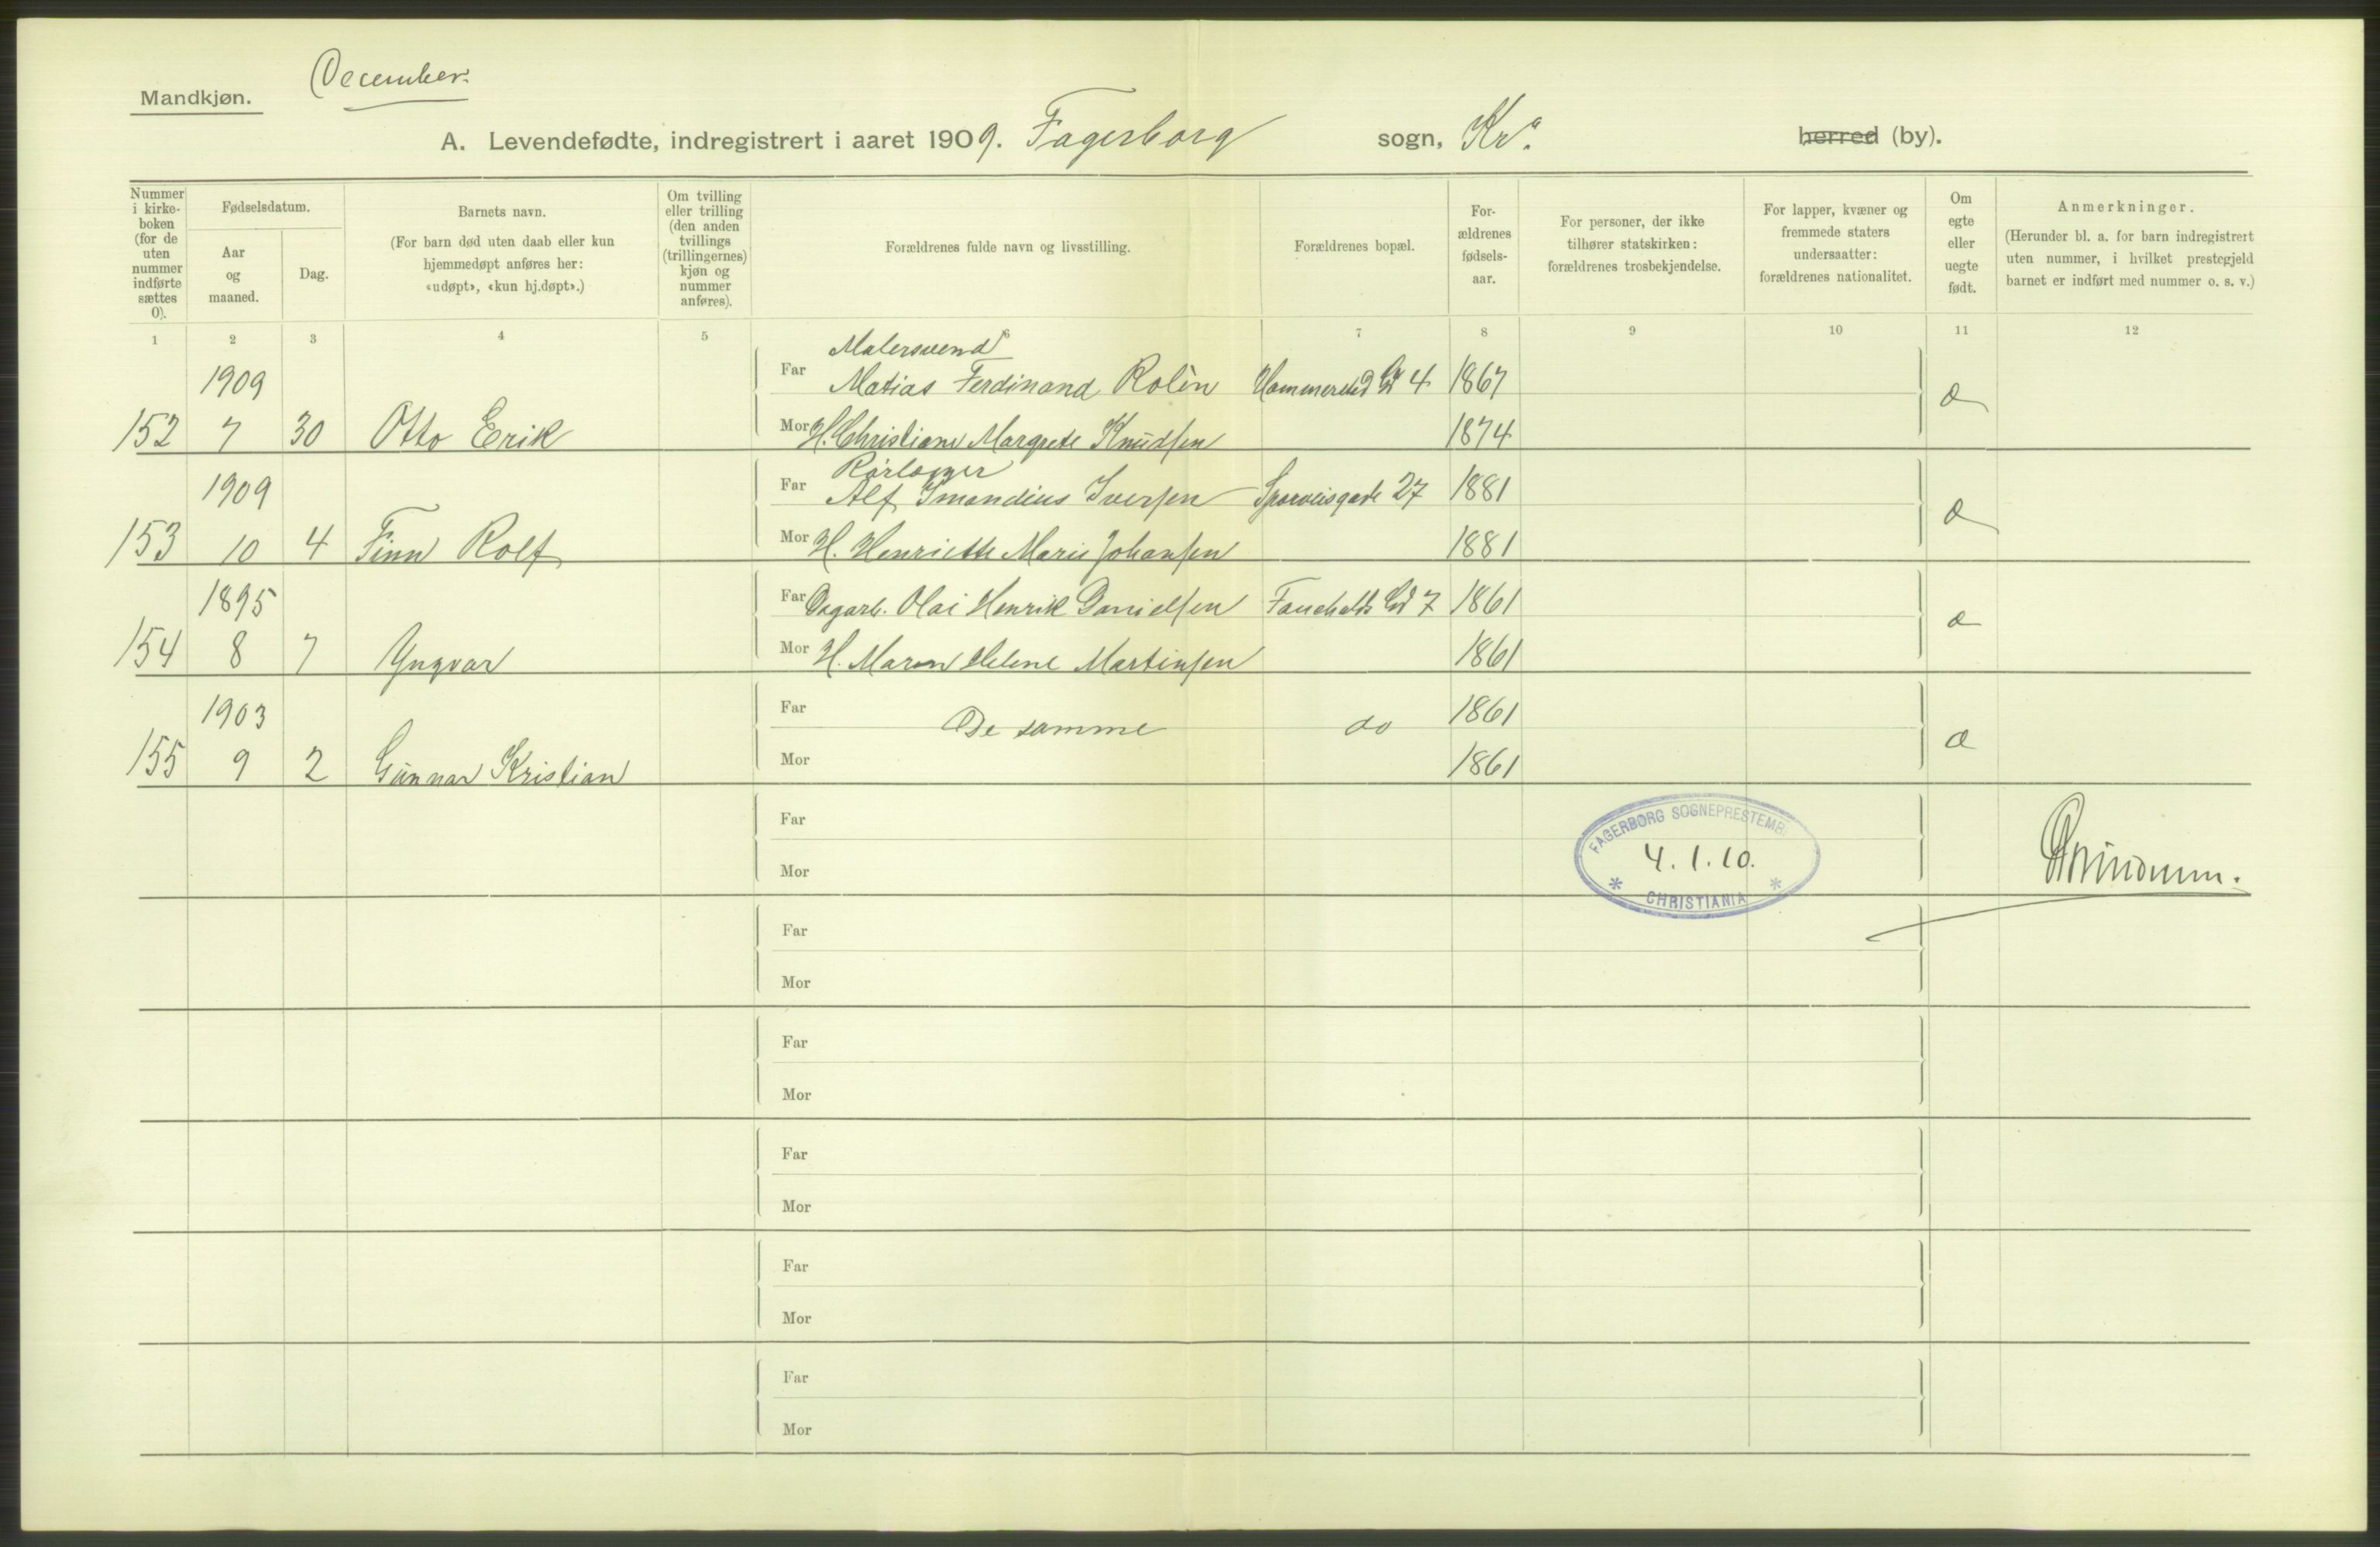 Mandkjøn.
December.
A. Levendefødte, indregistrert i aaret 1909. Fagerborg sogn, Kra. herred (by).
Nummer i kirke-boken (for de uten nummer indførte sættes 0).
Fødselsdatum.
Aar og maaned.
Dag.
Barnets navn.
(For barn død uten daab eller kun hjemmedøpt anføres her: «udøpt», «kun hj.døpt».)
Om tvilling eller trilling (den anden tvillings (trillingernes) kjøn og nummer anføres).
Forældrenes fulde navn og livsstilling.
Forældrenes bopæl.
For-ældrenes fødsels-aar.
For personer, der ikke tilhører statskirken: forældrenes trosbekjendelse.
For lapper, kvæner og fremmede staters undersaatter: forældrenes nationalitet.
Om egte eller uegte født.
Anmerkninger.
(Herunder bl. a. for barn indregistrert uten nummer, i hvilket prestegjeld barnet er indført med nummer o. s. v.)
1 2 3 4 5 6 7 8 9 10 11 12
Malersvend
1909 Far Matias Ferdinand Rolèn 4 1867
152 7 30 Otto Erik Mor H. Christiane Margrete Knudsen 1874
Rørlægger
1909 Far Alf Imandius Iversen Sporveisgade 27 1881
153 10 4 Finn Rolf Mor H. Henriette Marie Johansen 1881
1895 Far Dagarb. Olai Henrik Danielsen Fauchalds Gd 7 1861
154 8 7 Yngvar Mor H. Maren Helene Martinsen 1861
1903 Far De samme do 1861
155 9 2 Gunnar Kristian Mor 1861
Far
FAGERBORG SOGNEPRESTEMB
4.1.10.
CHRISTIANIA
Mor
Far
Mor
Far
Mor
Far
Mor
Far
Mor
Far
Mor